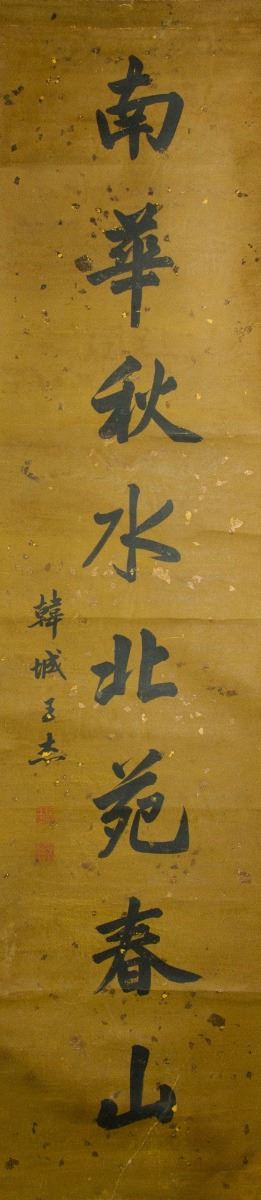 南華秋水北苑春山
韓城王杰